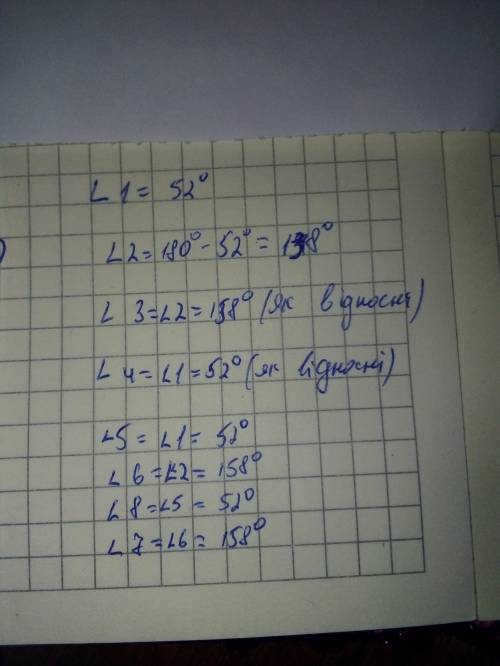 ∠1 = 52°
∠2 = 180° - 52° = 138°
∠3 = ∠2 = 158° (як відносні)
∠4 = ∠1 = 52° (як відносні)
∠5 = ∠1 = 52°
∠6 = ∠2 = 158°
∠8 = ∠5 = 52°
∠7 = ∠6 = 158°